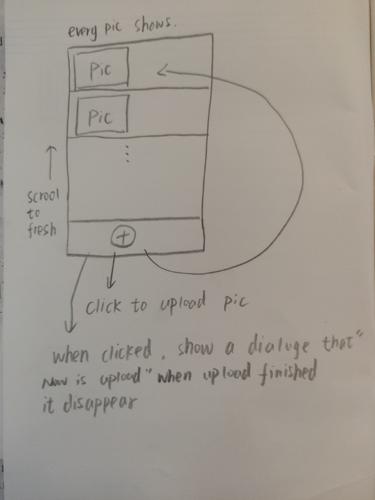 every pic shows.
Pic
Pic
scrool
to
fresh
click to upload pic
when clicked, show a dialuge that "
Now is upload" when upload finished
it disappear